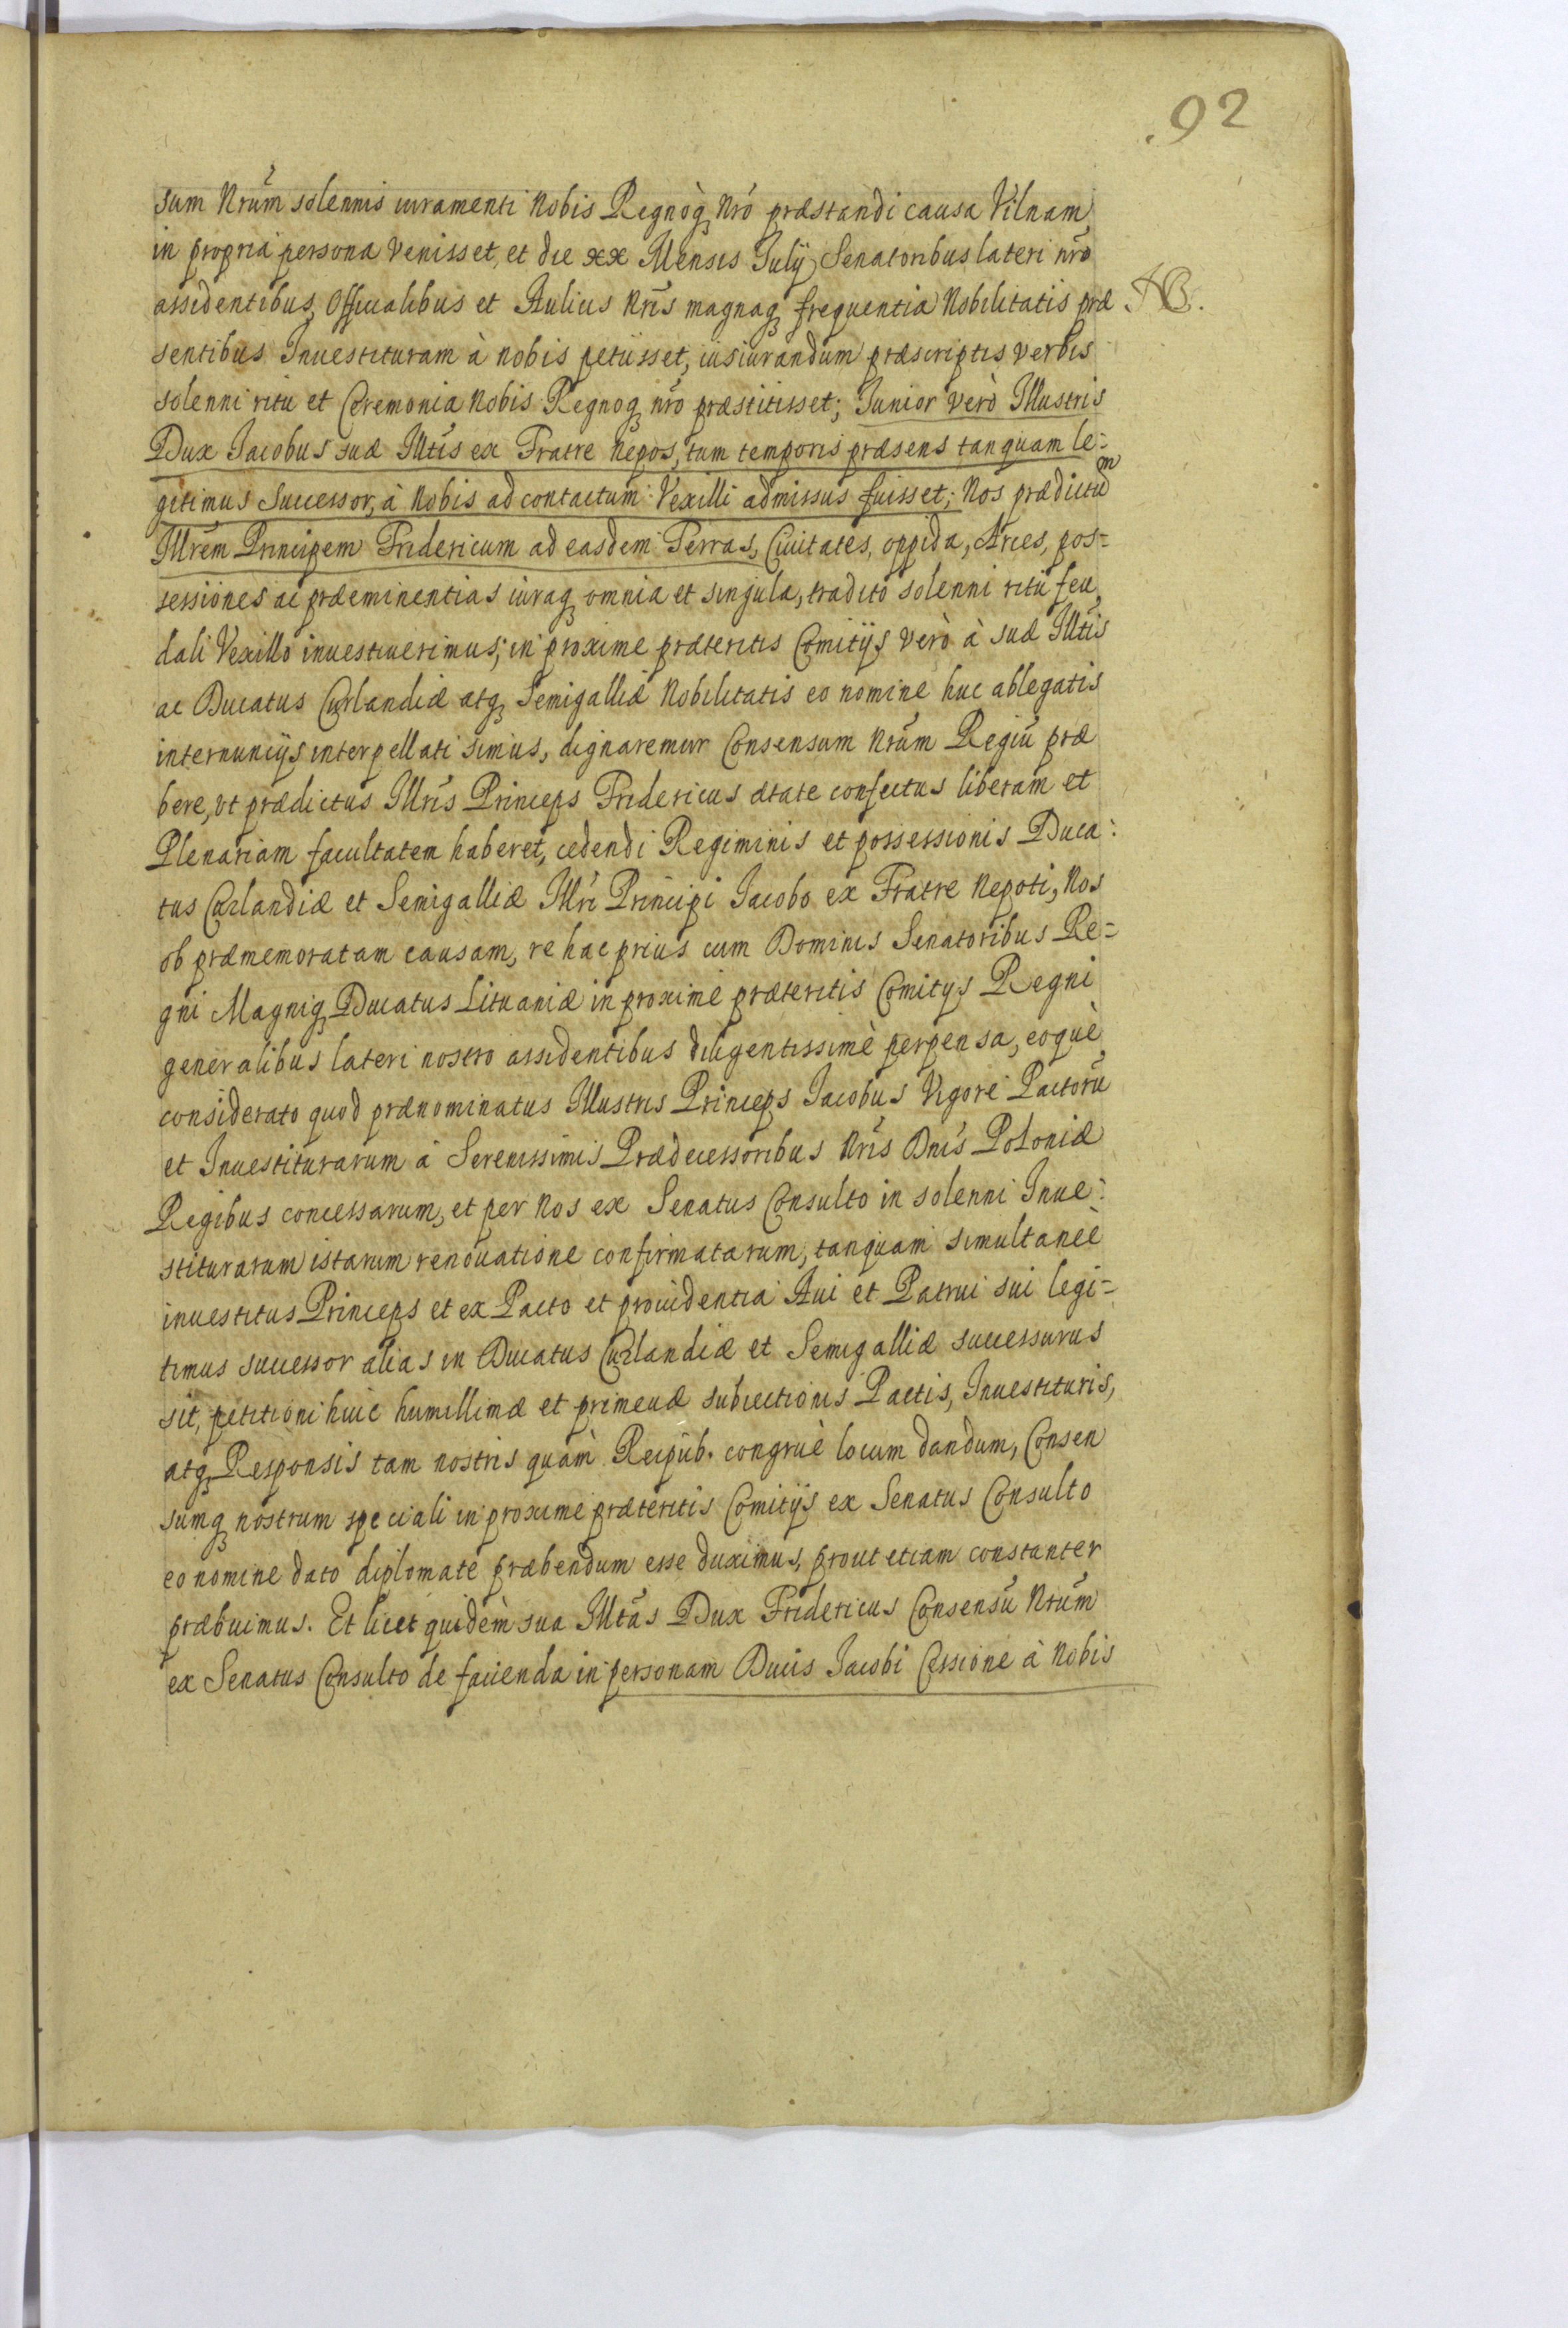 92
sum Nrũm solennis iuramenti Nobis Regnoq́ Nrõ præstandi causa Vilnam
in propria persona venisset, et die xx Mensis Iulij Senatoribus lateri nrõ
assidentibus, Officialibus et Aulicis Nrĩs magnaq frequentia Nobilitatis præ
NB.
sentibus Inuestituram à nobis petiisset, iusiurandum præscriptis verbis
solenni ritu et Ceremonia Nobis Regnoq nrõ præstitisset; Iunior verò Illustris
Dux Iacobus suæ Illtĩs ex Fratre Nepos, tum temporis præsens tanquam le=
gitimus Successor, à Nobis ad contactum Vexilli admissus fuisset; Nos prædictum
Illrẽm Principem Fridericum ad easdem Terras, Ciuitates, oppida, Arces, pos=
sessiones ac præeminentias iuraq omnia et singula, tradito solenni ritu feu,
dali Vexillo inuestiuerimus; in proxime præteritis Comitijs verò à suæ Illtĩs
ac Ducatus Curlandiæ atq Semigalliæ Nobilitatis eo nomine huc ablegatis
internuncijs interpellati simus, dignaremur Consensum Nrũm Regiũ præ
bere, vt prædictus Illrĩs Princeps Fridericus ætate confectus liberam et
Plenariam facultatem haberet, cedendi Regiminis et possessionis Duca:
tus Curlandiæ et Semigalliæ Illrĩ Principi Iacobo ex Fratre Nepoti, Nos
ob præmemoratam causam, re hac prius cum Dominis Senatoribus Re=
gni Magniq Ducatus Lituaniæ in proximè præteritis Comitijs Regni
generalibus lateri nostro assidentibus diligentissimè perpensa, eoquè
considerato quod prænominatus Illustris Princeps Iacobus Vigore Pactorũ
et Inuestiturarum à Serenissimis Prædecessoribus Nrĩs Dnĩs Poloniæ
Regibus concessarum, et per Nos ex Senatus Consulto in solenni Inue:
stiturarum istarum renouatione confirmatarum, tanquam simultaneè
inuestitus Princeps et ex Pacto et prouidentia Aui et Patrui sui legi=
timus successor alias in Ducatus Curlandiæ et Semigalliæ successurus
sit, petitioni huic humillimæ et primeuæ subiectionis Pactis, Inuestituris,
atq Responsis tam nostris quàm Reipub. congruè locum dandum, Consen
sumq nostrum speciali in proximè præteritis Comitijs ex Senatus Consulto
eo nomine dato diplomate præbendum esse duximus, prout etiam constanter
præbuimus. Et licet quidem sua Illtãs Dux Fridericus Consensũ Nrũm
ex Senatus Consulto de facienda in personam Ducis Iacobi Cessione à Nobis